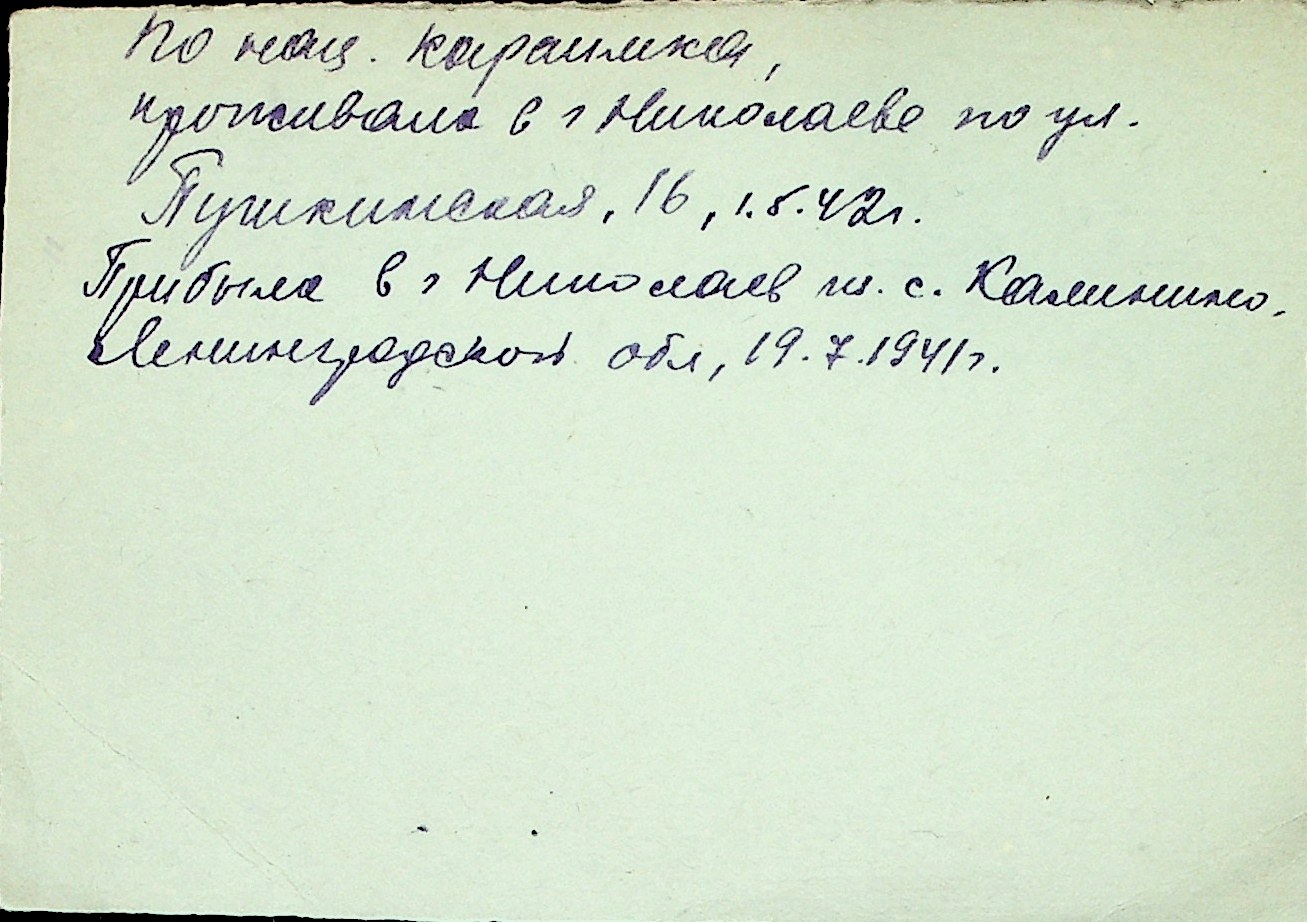 По нац. караимка,
проживала в г Николаеве по ул.
Пушкинская, 16, 1.5.42г.
Прибыла в г Николаев из. с. Калинино,
Ленинградской обл, 19.7.1941г.